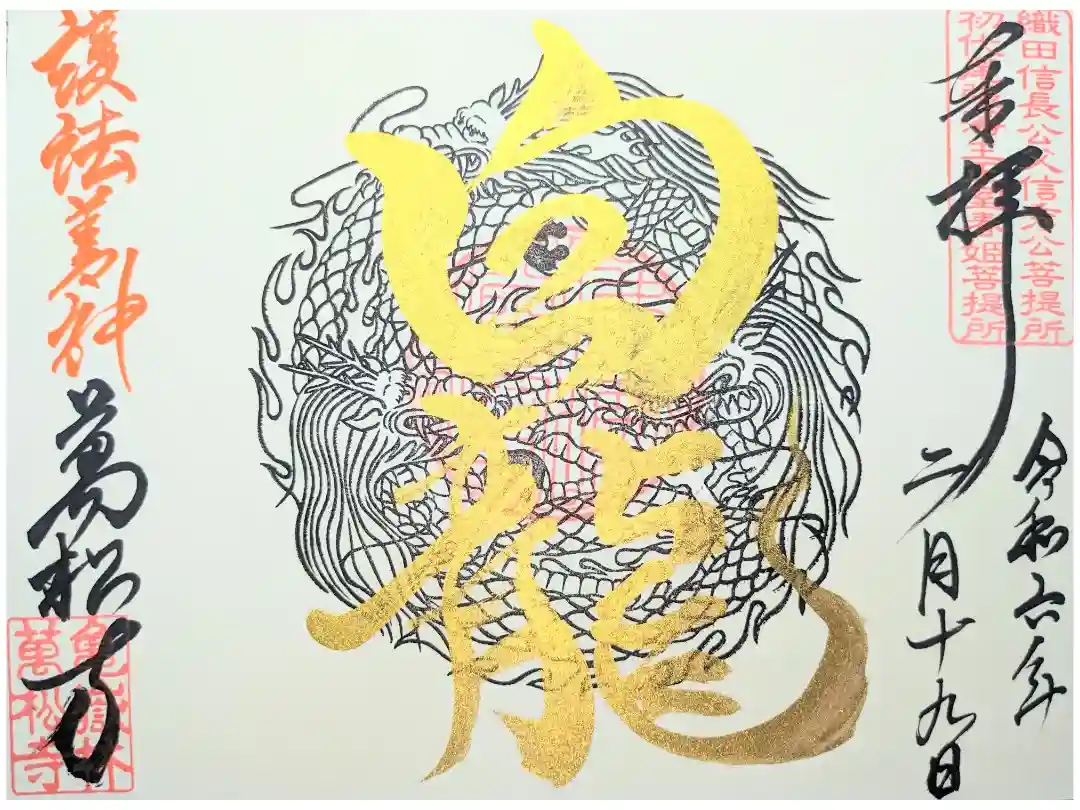 織田信長公父信秀公菩提所
初代
主
姫菩提所
奉拝
令和六年
二月十九日
白龍
護法善神
萬松寺
亀嶽林
萬松寺